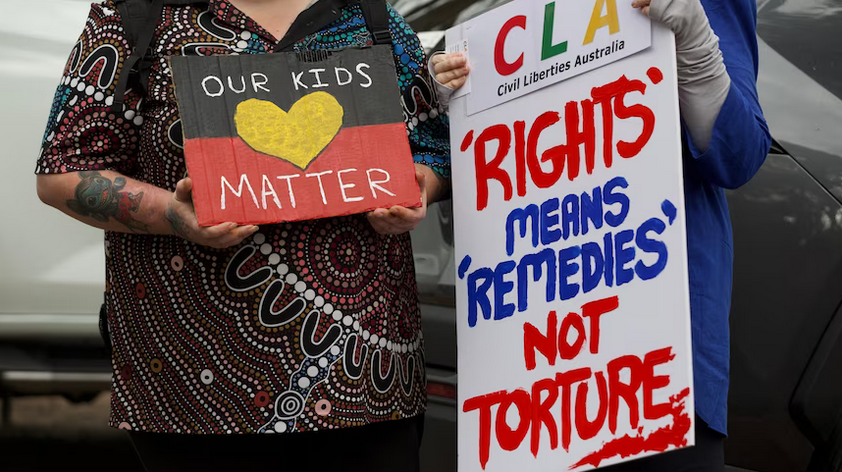 OUR KIDS
MATTER
CLA
Civil Liberties Australia
'RIGHTS'
MEANS
'REMEDIES'
NOT
TORTURE